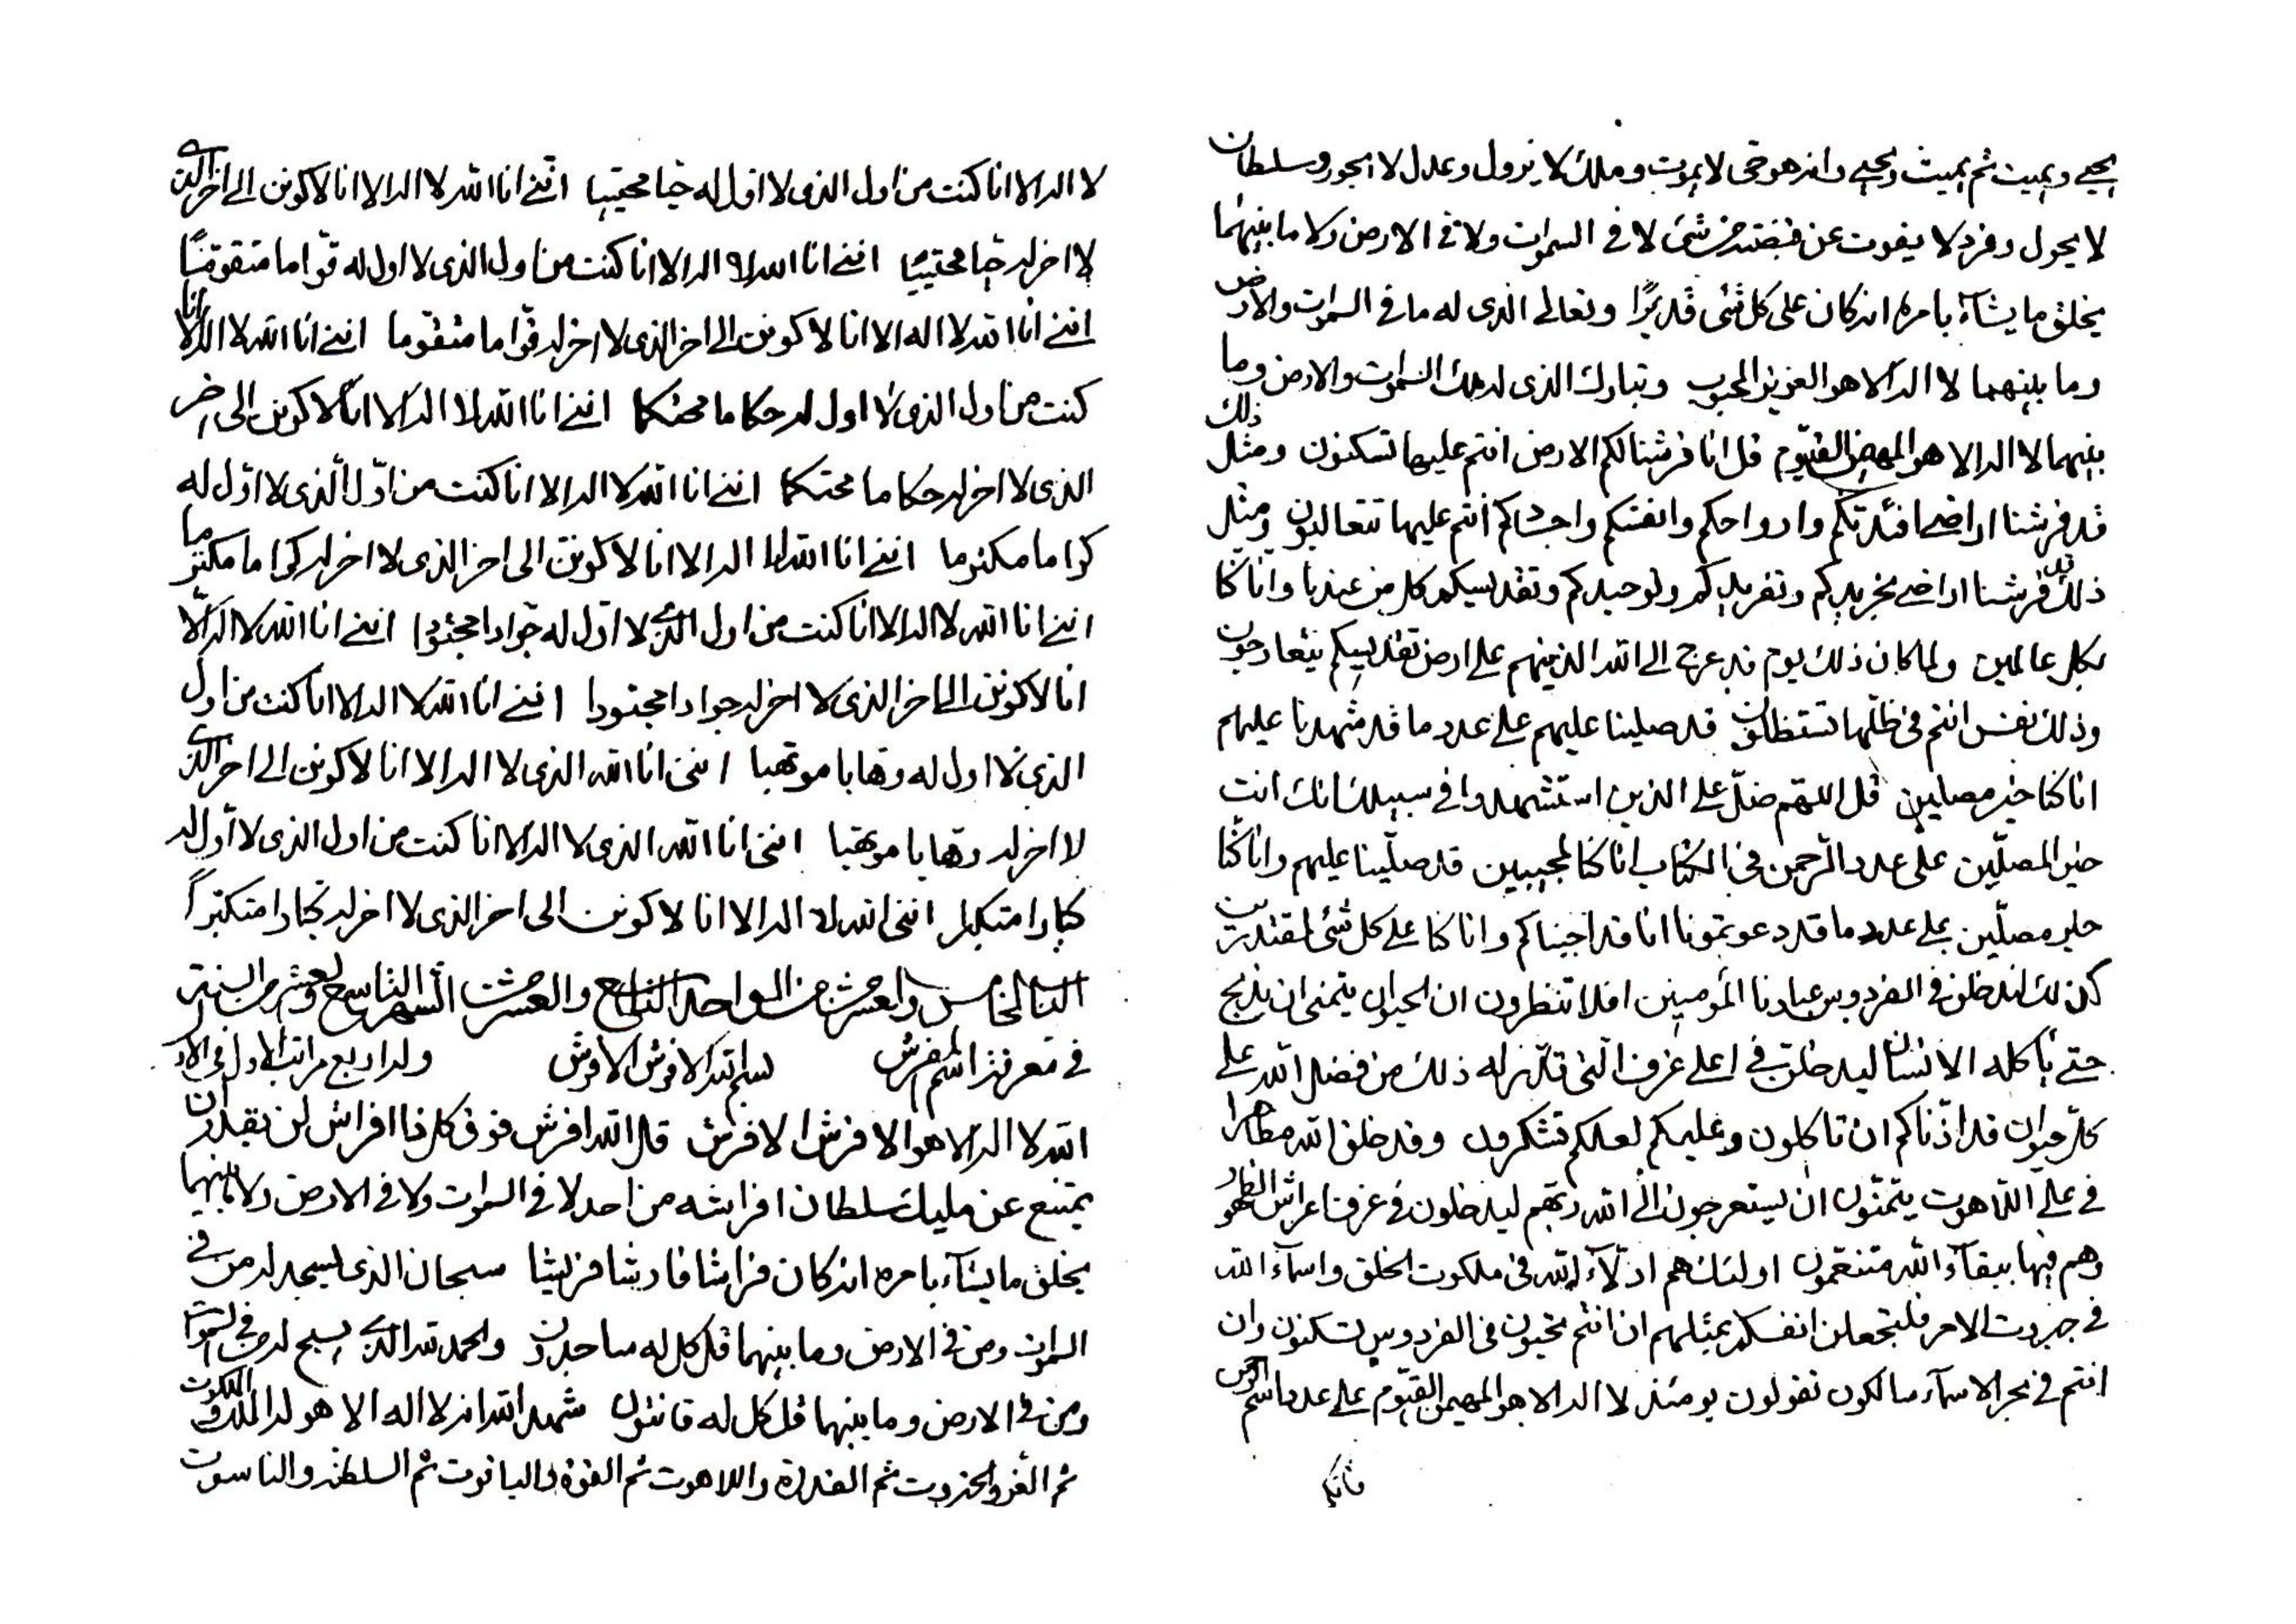 يحيي ويميت ثم يميت ويحيي وانه هو حي لا يموت وملك لا يزول وعدل لا يجور وسلطان
لا يحول وفرد لا يفوت عن قبضته من شئ لا في السموات ولا في الارض ولا ما بينهما
يخلق ما يشآء بامره انه كان على كل شئ قديرًا وتعالى الذى له ما في السموات والارض
وما بينهما لا اله الا هو العزيز المحبوب وتبارك الذى له ملك السموات والارض وما
بينهما لا اله الا هو المهيمن القيوم قل انا فرشنا لكم الارض انتم عليها تسكنون ومثل ذلك
قد فرشنا اراضى افئدتكم وارواحكم وانفسكم واجسادكم انتم عليها تتعاليون ومثل
ذلك قد فرشنا اراضى تجريدكم وتفريدكم وتوحيدكم وتقديسكم كل من عندنا وانا كنا
بكل عالمين ولما كان ذلك يوم قد عرج الى الله الذينهم على ارض تقديسكم يتعارجون
وذلك نفس انتم في ظلها تستظلون قد صلينا عليهم على عدد ما قد شهدنا عليهم
انا كنا خير مصلين قل اللهم صل على الذين استشهدوا في سبيلك انك انت
خير المصلين على عدد الرحمن في الكتاب انا كنا لمجيبين قد صلينا عليهم وانا كنا
خير مصلين على عدد ما قد دعوتمونا انا قد اجبناكم وانا كنا على كل شئ لمقتدرين
كذلك لندخلن في الفردوس عبادنا المؤمنين افلا تنظرون ان الحيوان يتمنى ان يذبح
حتى ياكله الانسان ليدخلن في اعلى غرف التى تلذ له ذلك من فضل الله على
كل حيوان قد اذناكم ان تاكلون وعليكم لعلكم تشكرون وقد خلق الله مظاهرا
في على اللاهوت يتمنون ان يستعرجون الى الله ربهم ليدخلون في غرفات اعراش الظهور
وهم فيها ببقآء الله متنعمون اولئك هم ادلآء لله في ملكوت الخلق واسمآء الله
في جبروت الامر فلتجعلن انفسكم بمثلهم ان انتم تحبون في الفردوس تسكنون وان
انتم في بحر الاسمآء سالكون تقولون يومئذ لا اله الا هو المهيمن القيوم على عدد اسم
فانكم
لا اله الا انا كنت من اول الذى لا اول له حيا محتييا اننى انا الله لا اله الا انا لاكونن الى اخر الذى
لا اخر له حيا محتييا اننى انا الله لا اله الا انا كنت من اول الذى لا اول له قواما متقوما
اننى انا الله لا اله الا انا لاكونن الى اخر الذى لا اخر له قواما متقوما اننى انا الله لا اله الا انا
كنت من اول الذى لا اول له حكاما محتكما اننى انا الله لا اله الا انا لاكونن الى اخر
الذى لا اخر له حكاما محتكما اننى انا الله لا اله الا انا كنت من اول الذى لا اول له
كراما مكترما اننى انا الله لا اله الا انا لاكونن الى اخر الذى لا اخر له كراما مكترما
اننى انا الله لا اله الا انا كنت من اول الذى لا اول له جوادا مجتودا اننى انا الله لا اله الا
انا لاكونن الى اخر الذى لا اخر له جوادا مجتودا اننى انا الله لا اله الا انا كنت من اول
الذى لا اول له وهابا موتهبا اننى انا الله الذى لا اله الا انا لاكونن الى اخر الذى
لا اخر له وهابا موتهبا اننى انا الله الذى لا اله الا انا كنت من اول الذى لا اول له
كبارا متكبرا اننى الله لا اله الا انا لاكونن الى اخر الذى لا اخر له كبارا متكبرا
الباب الخامس والعشر من الواحد التاسع والعشر من الشهر التاسع والعشر من السنة
في معرفة اسم المفرش بسم الله الافرش الافرش وله اربع مراتب الاول في الاول
الله لا اله الا هو الافرش الافرش قل الله افرش فوق كل ذا افراش لن يقدر ان
يمتنع عن مليك سلطان افراشه من احد لا في السموات ولا في الارض ولا ما بينهما
يخلق ما يشآء بامره انه كان فراشا فارشا فريشا سبحان الذى يسجد له من في
السموات ومن في الارض وما بينهما قل كل له ساجدون والحمد لله الذى يسبح له من في السموات
ومن في الارض وما بينهما قل كل له قانتون شهد الله انه لا اله الا هو له الملك والملكوت
ثم العز والجبروت ثم القدرة واللاهوت ثم القوة والياقوت ثم السلطنة والناسوت